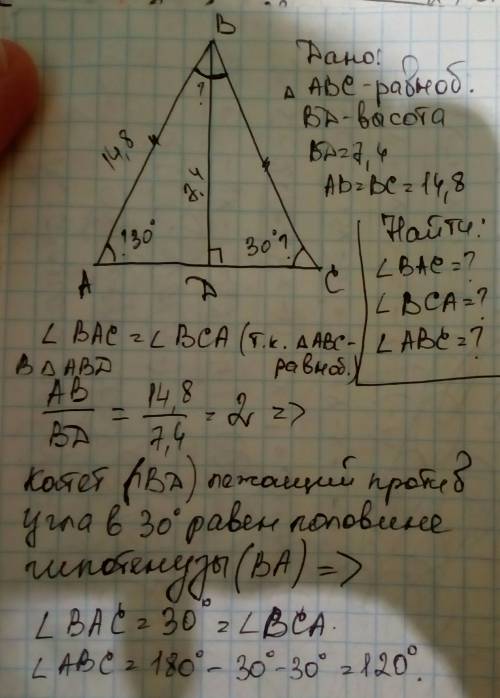 B
Дано:
△ ABC - равноб.
BД - высота
BД = 7,4
AB = BC = 14,8
?
14,8
7,4
?30°
30°?
A
Д
C
Найти:
∠BAC = ?
∠BCA = ?
∠ABC = ?
∠BAC = ∠BCA (т.к. △ABC - равноб.)
В △ABД
AB/BД = 14,8/7,4 = 2 =>
Катет (BД) лежащий против
угла в 30° равен половине
гипотенузы (BA) =>
∠BAC = 30° = ∠BCA.
∠ABC = 180° - 30° - 30° = 120°.